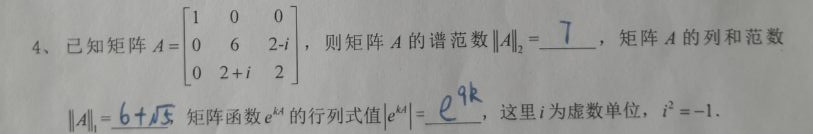 4、已知矩阵 A = [1 0 0; 0 6 2-i; 0 2+i 2]，则矩阵 A 的谱范数‖A‖₂ = 7，矩阵 A 的列和范数
‖A‖₁ = 6+√5 矩阵函数 e^{kA} 的行列式值|e^{kA}| = e^{9k}，这里 i 为虚数单位，i² = −1.